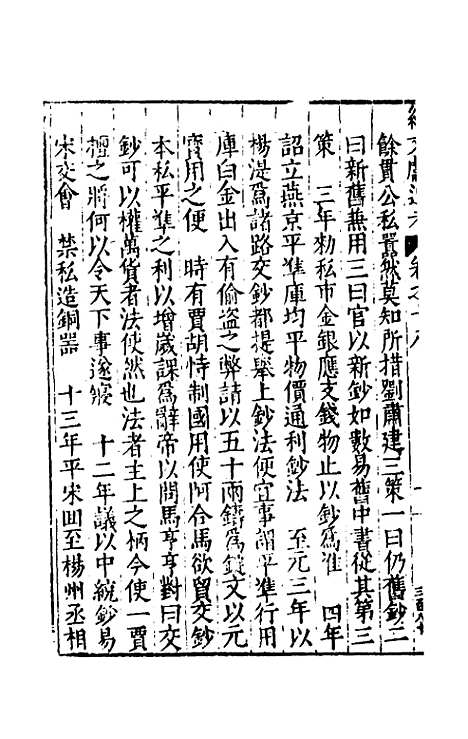 餘貫公私囂然莫知所措劉肅建三策一曰仍舊鈔二
曰新舊兼用三曰官以新鈔如數易舊中書從其第三
策　三年勑私市金銀應支錢物止以鈔為准　四年
詔立燕京平準庫均平物價通利鈔法　至元三年以
楊湜為諸路交鈔都提舉上鈔法便宜事謂平準行用
庫白金出入有偷盗之弊請以五十兩鑄為錠文以元
寳用之便　時有賈胡恃制國用使阿合馬欲貿交鈔
本私平準之利以增歲課為辭帝以問馬亨亨對曰交
鈔可以權萬貨者法使然也法者主上之柄今使一賈
擅之將何以令天下事遂寢　十二年議以中統鈔易
宋交會　禁私造銅器　十三年平宋囬至楊州丞相